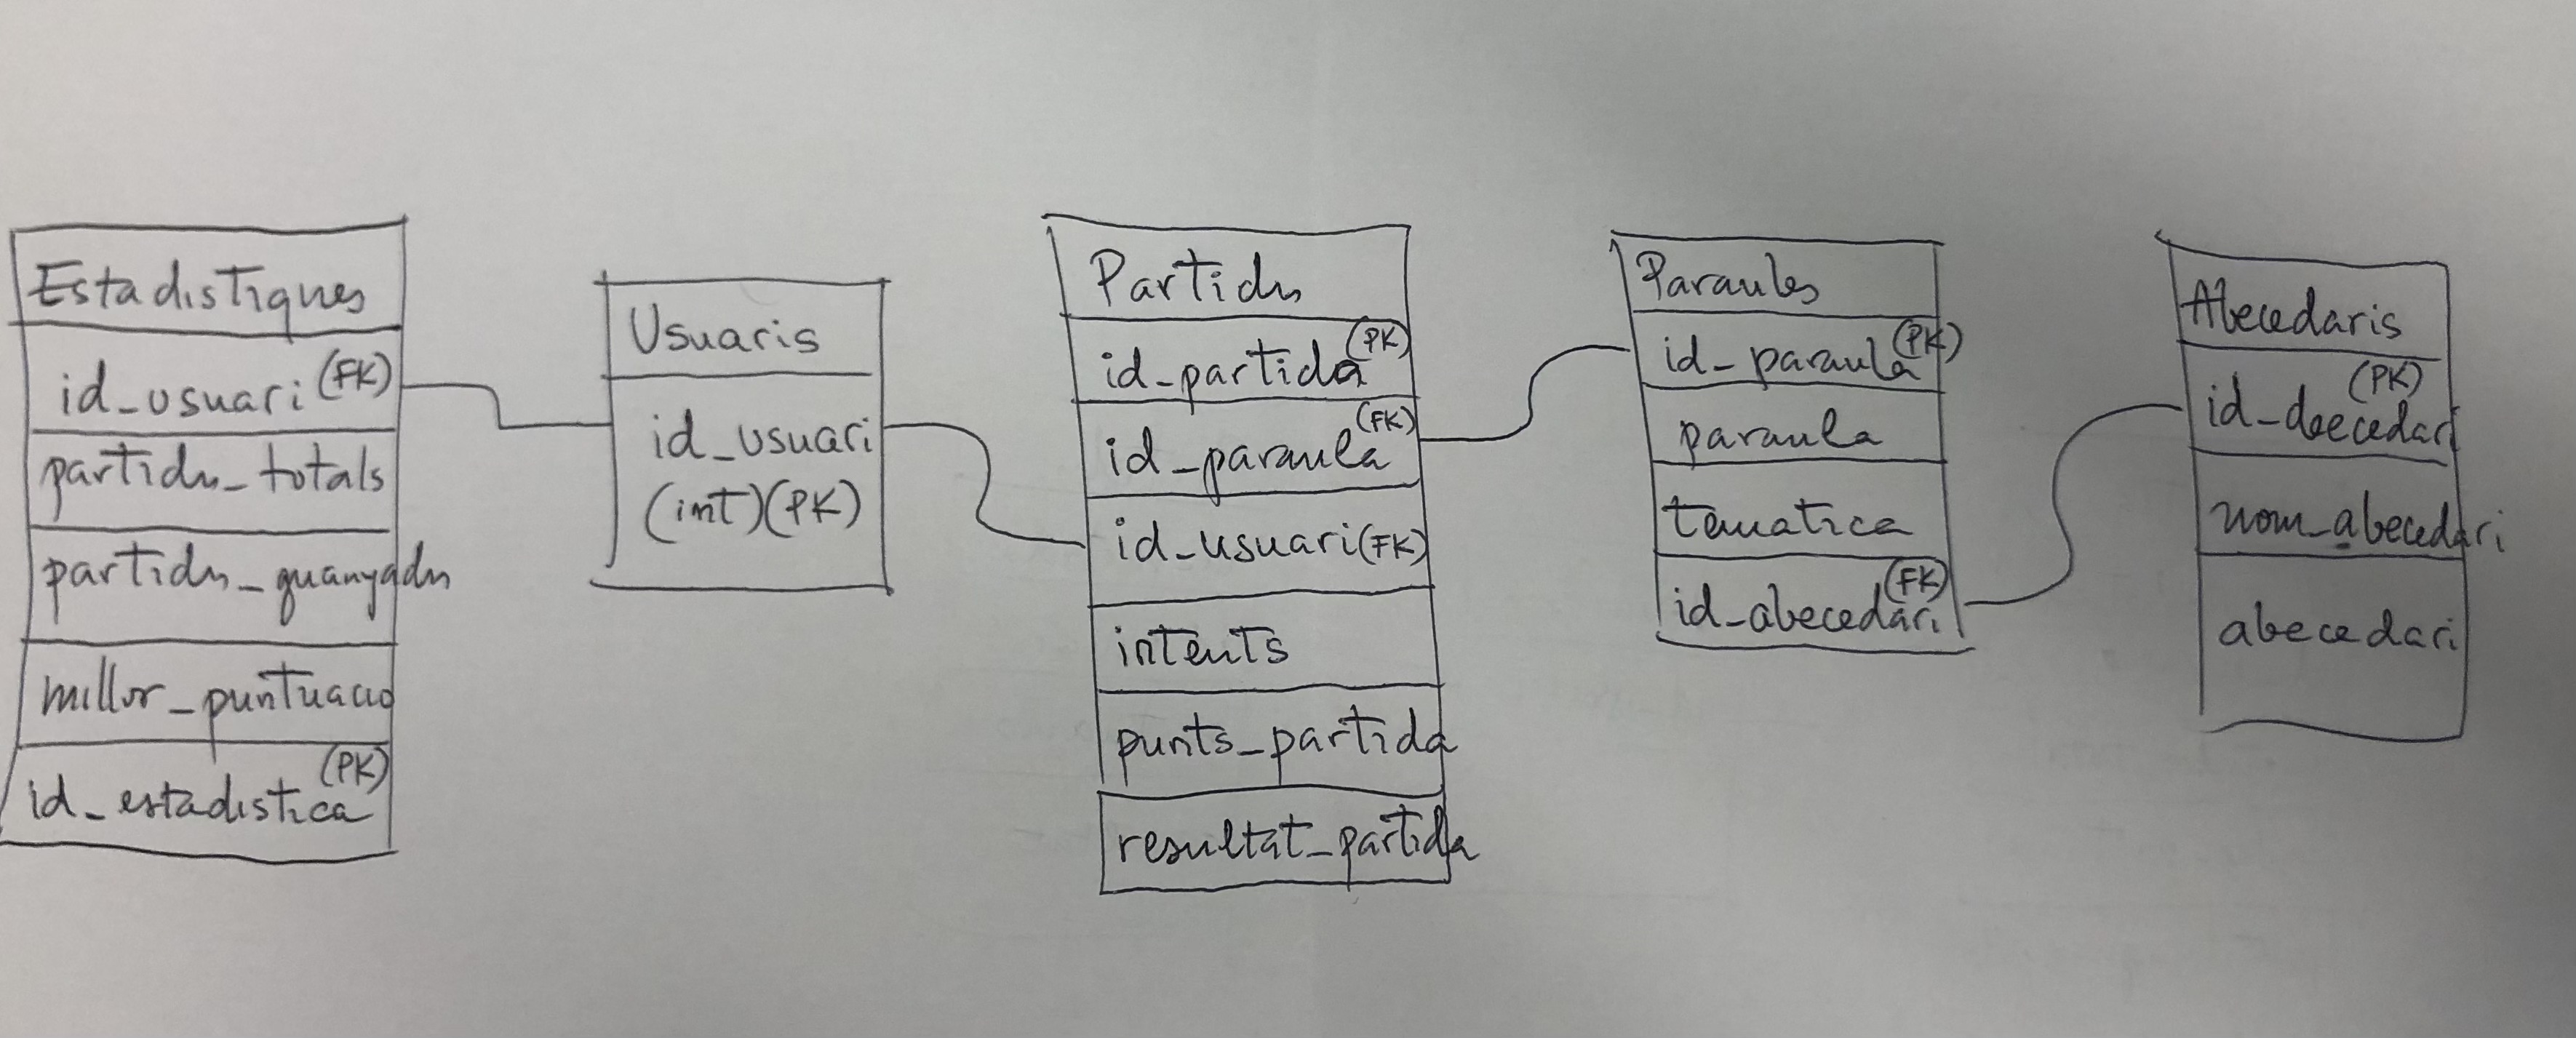 Estadistiques
id_usuari (FK)
partides_totals
partides_guanyades
millor_puntuacio
id_estadistica (PK)
Usuaris
id_usuari
(int)(PK)
Partides
id_partida (PK)
id_paraula (FK)
id_usuari (FK)
intents
punts_partida
resultat_partida
Paraules
id_paraula (PK)
paraula
tematica
id_abecedari (FK)
Abecedaris
(PK)
id_abecedari
nom_abecedari
abecedari